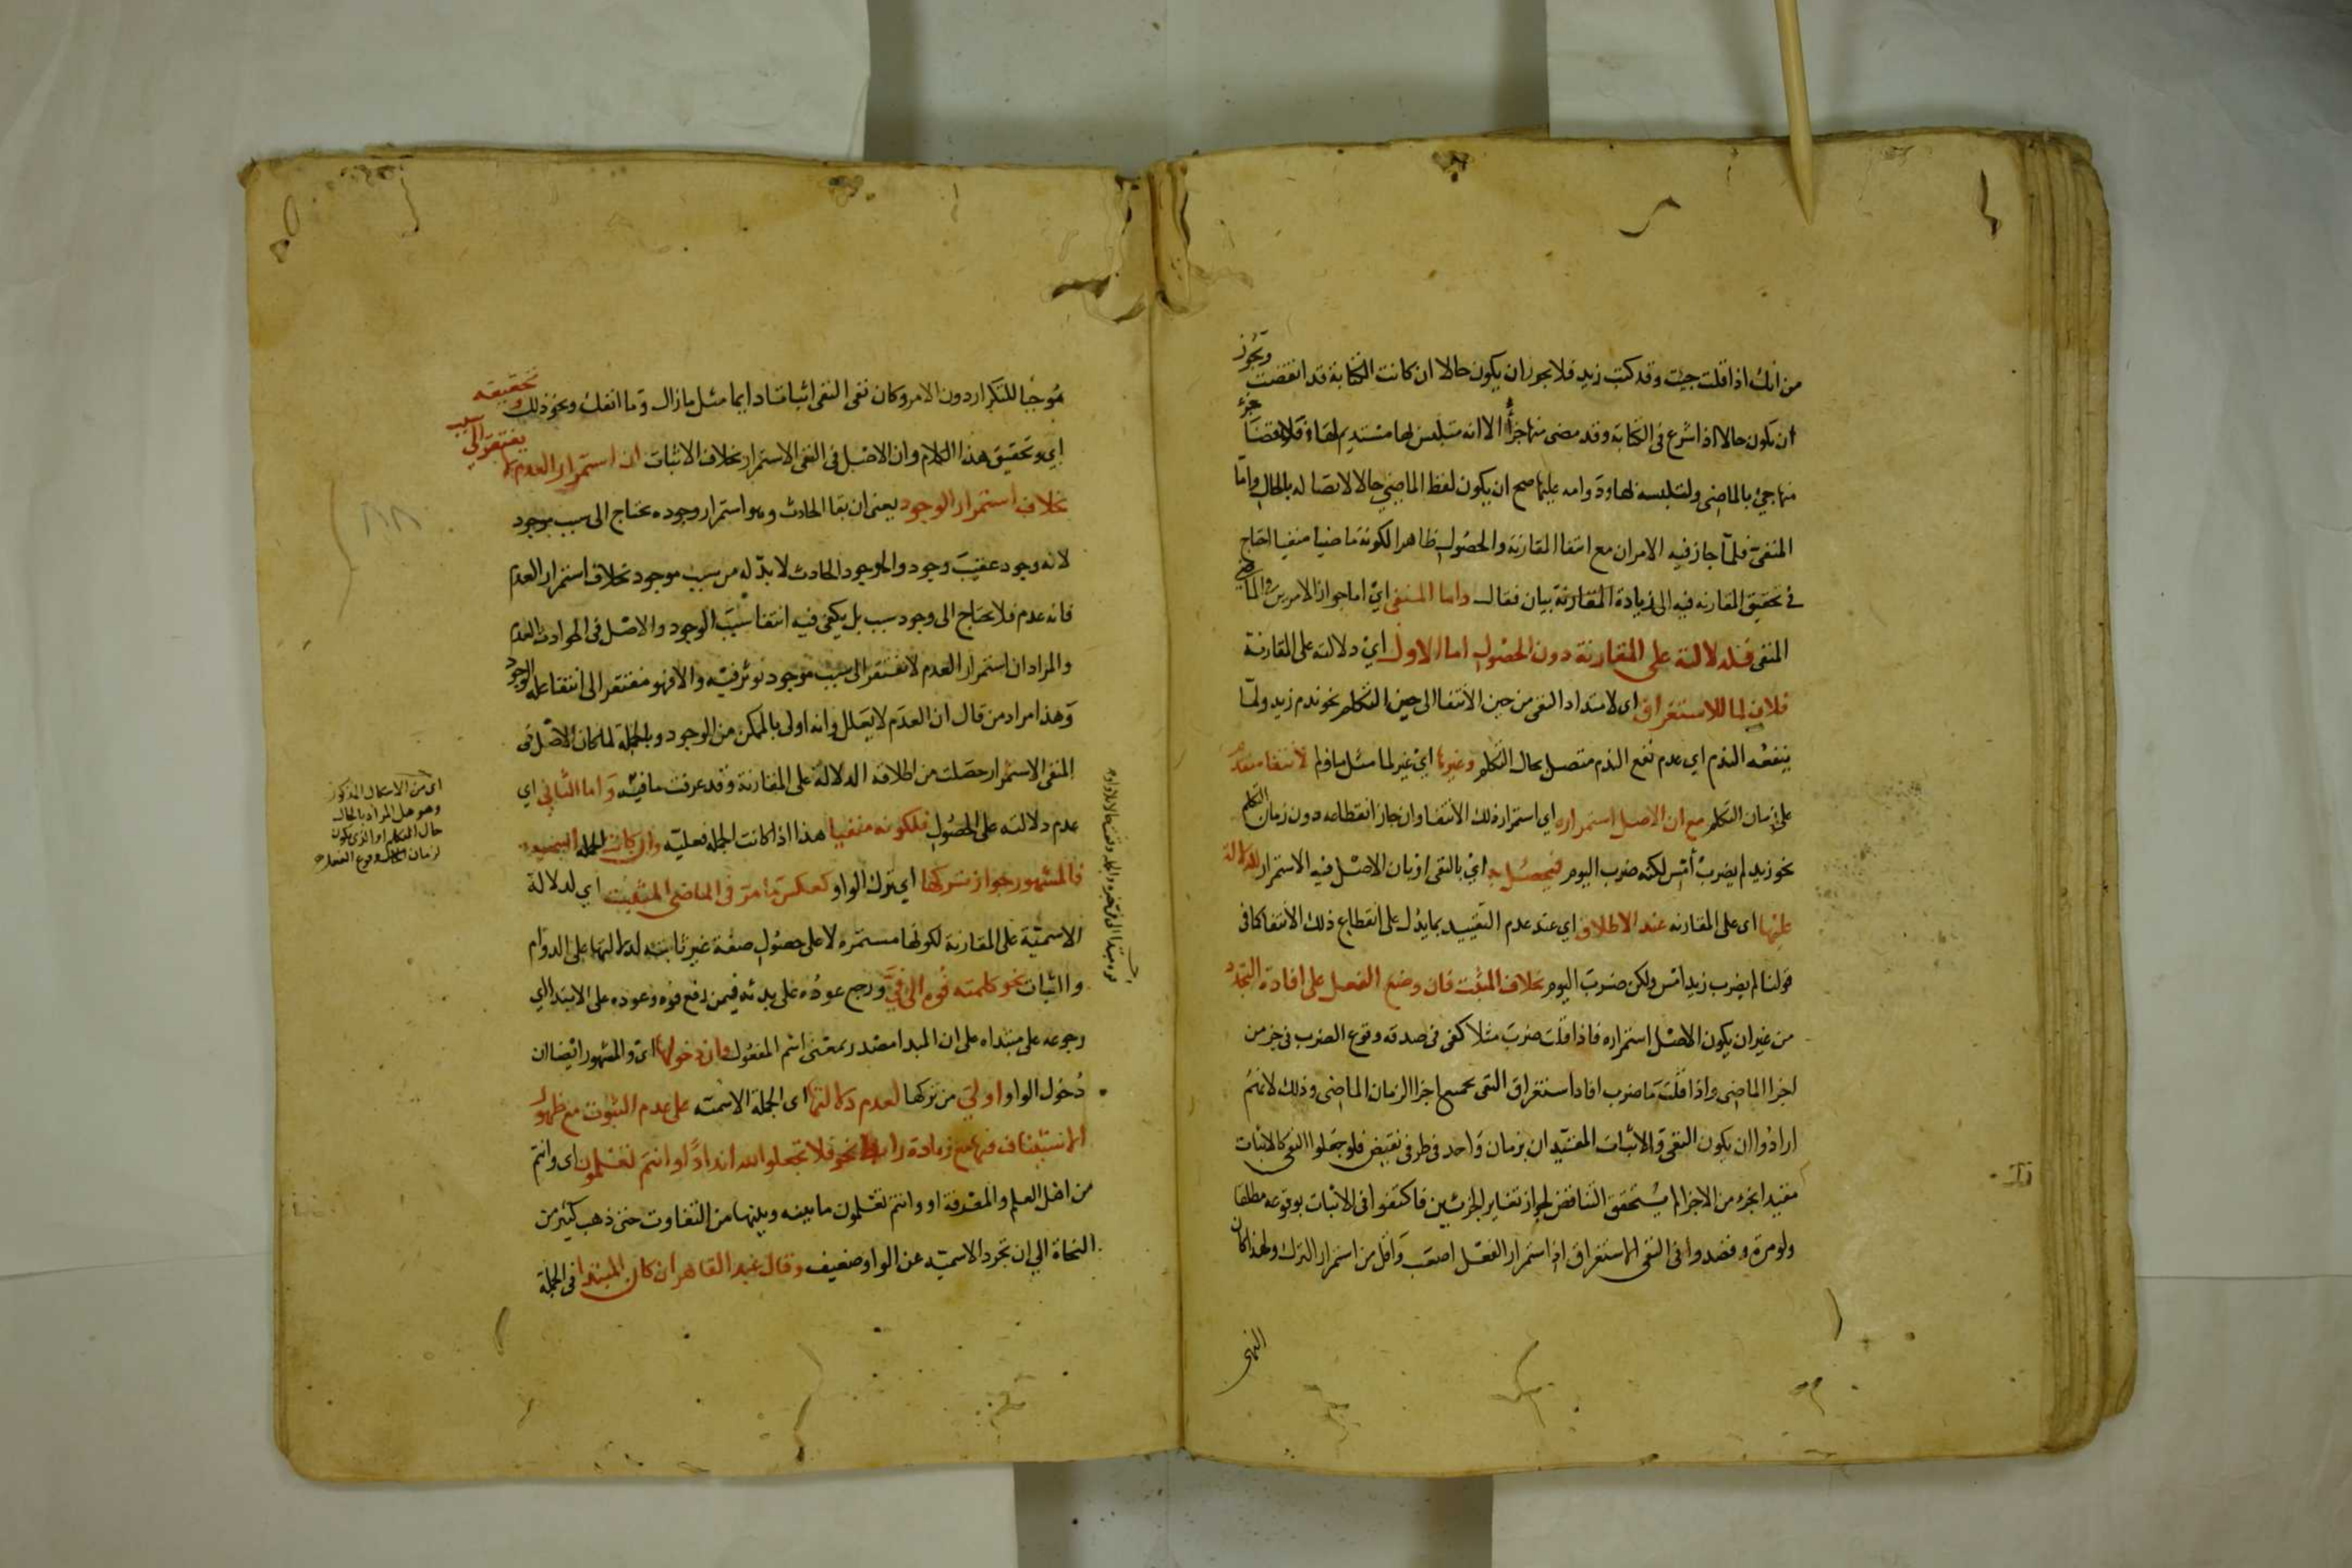 من انك اذا قلت جيت وقد كتب زيد فلا يجوز ان يكون حالا ان كانت الكتابة قد انقضت ويجوز
ان يكون حالا اذا شرع فى الكتابة وقد مضى منها جزأ الا انه متلبس لها مستديم لها فلانقضا جزء
منها جئ بالماضى ولتلبسه لها ودوامه عليها صح ان يكون لفظ الماضى حالا لاتصاله بالحال واما
المنفى فلما جاز فيه الامران مع انتفا المقارنة والحصول ظاهرا لكونه ماضيا منفيا احتاج
فى تحقيق المقارنه فيه الى زيادة بيان فقال واما المنفى اي اما جواز الامرين فى الماضى
المنفى فلدلالته على المقارنة دون الحصول اما الاول اي دلالته على المقارنة
فلان لما للاستغراق اى لامتداد النفى من حين الانتفا الى حين التكلم نحو ندم زيد ولما
ينفعه الندم اي عدم نفع الندم متصل بحال التكلم وغيرها اي غير لما مثل ما ولم لانتفا متقدم
على زمان التكلم مع ان الاصل استمراره اي استمرار ذلك الانتفا وان جاز انقطاعه دون زمان التكلم
نحو زيد لم يضرب أمس لكنه ضرب اليوم فيحصل به اي بالنفى او بان الاصل فيه الاستمرار الدلالة
عليها اى على المقارنه عند الاطلاق اي عند عدم التقييد بما يدل على انقطاع ذلك الانتفا كما فى
قولنا لم يضرب زيد امس ولكن ضرب اليوم بخلاف المثبت فان وضع الفعل على افادة التجدد
من غير ان يكون الاصل استمراره فاذا قلت ضرب مثلا كفى فى صدقه وقوع الضرب فى جزء من
اجزا الماضى واذا قلت ما ضرب افاد استغراق النفى بجميع اجزا الزمان الماضى وذلك لانهم
ارادوا ان يكون النفى والاثبات المقيدان بزمان واحد فى طرفى نقيض فلو جعلوا النفى كالاثبات
مقيدا بجزء من الاجزا لم يتحقق التناقض لجواز تغاير الجزئين فاكتفوا فى الاثبات بوقوعه مطلقا
ولو مرة وقصدوا فى النفى الاستغراق اذ استمرار الفعل اصعب واقل من استمرار الترك ولهذا كان
النهى
موجبا للتكرار دون الامر وكان نفى النفى اثباتا دايما مثل ما زال وما انفك ونحو ذلك وتحقيقه
اي وتحقيق هذا الكلام وان الاصل فى النفى الاستمرار بخلاف الاثبات ان استمرار العدم لا يفتقر الى سبب
بخلاف استمرار الوجود يعنى ان بقا الحادث وهو استمرار وجوده يحتاج الى سبب موجود
لانه وجود عقيب وجود والوجود الحادث لا بد له من سبب موجود بخلاف استمرار العدم
فانه عدم فلا يحتاج الى وجود سبب بل يكفى فيه انتفا سبب الوجود والاصل فى الحوادث العدم
والمراد ان استمرار العدم لا يفتقر الى سبب موجود يوثر فيه والا فهو مفتقر الى انتفا علة الوجود
وهذا مراد من قال ان العدم لا يعلل وانه اولى بالممكن من الوجود وبالجملة لما كان الاصل فى
المنفى الاستمرار حصلت من اطلاقه الدلالة على المقارنة وقد عرفت ما فيه واما الثانى اي
عدم دلالته على الحصول فلكونه منفيا هذا اذا كانت الجملة فعلية وان كانت الجملة اسمية
فالمشهور جواز تركها اي ترك الواو كعكس ما مر فى الماضى المثبت اي لدلالة
الاسمية على المقارنة لكونها مستمرة لا على حصول صفة غير ثابته لدلالتها على الدوام
والثبات نحو كلمته فوه الى فى ورجع عوده على بدئه فيمن رفع فوه وعوده على الابتدا اي
رجوعه على مبتداه على ان المبدا مصدر بمعنى اسم المفعول وان دخولها اى والمشهور ايضا ان
دخول الواو اولى من تركها لعدم دلالتها اى الجملة الاسمية على عدم الثبوت مع ظهور
الاستيناف فيها مع زيادة رابط نحو فلا تجعلوا لله اندادا وانتم تعلمون اى وانتم
من اهل العلم والمعرفة او وانتم تعلمون ما بينه وبينها من التفاوت حتى ذهب كثير من
النحاة الى ان تجرد الاسمية عن الواو ضعيف وقال عبد القاهر ان كان المبتدا فى الجملة
اى من الاشكال المذكور
وهو هل المراد بالحال
حال التكلم او الذى يكون